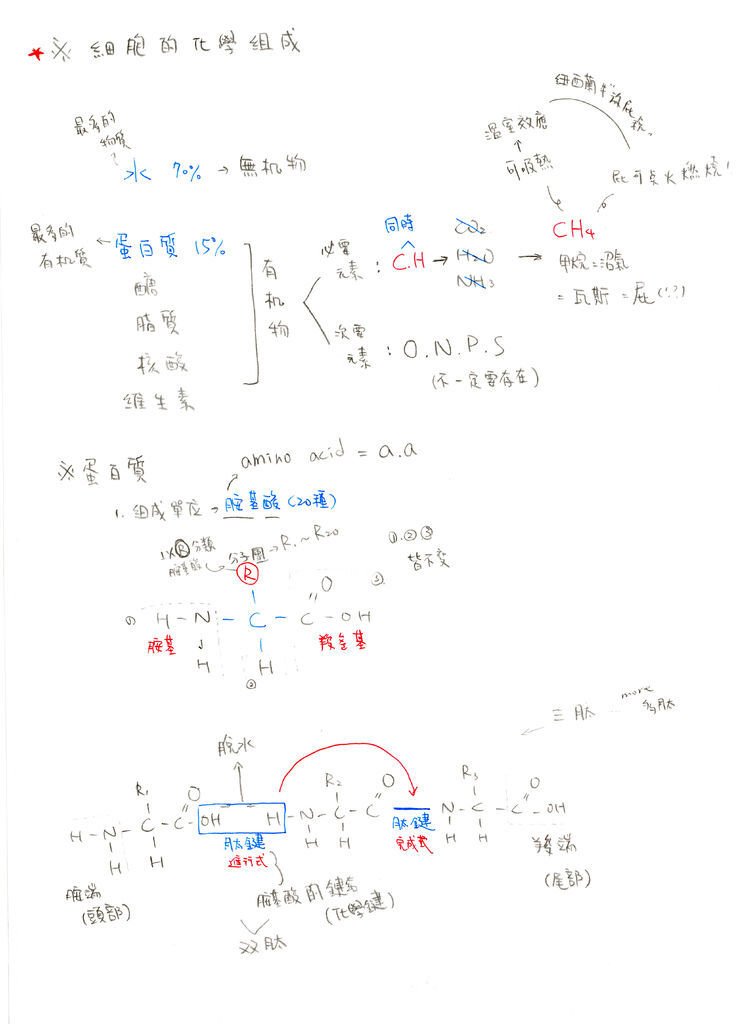 ★※ 細胞的化學組成
最多的
物質
水 70% → 無机物
紐西蘭牛放屁稅
溫室效應
↑
可吸熱
屁可点火燃燒!
最多的
有机質
← 蛋白質 15%
醣
脂質
核酸
維生素
有
机
物
必需
元素 :
同時
C.H →
CO2
H2O
NH3
→ CH4
甲烷=沼氣
=瓦斯=屁(!?)
次要
元素 : O.N.P.S
(不一定要存在)
※蛋白質
amino acid = a.a
1. 組成單位 → 胺基酸 (20種)
以R分類
胺基酸
分子團 → R1~R20
①.②③
皆不變
R
O
①
③
H-N-C-C-OH
胺基
羧基
H
H
②
三肽 ... more
多肽
脫水
R1
O
H-N-C-C-OH
H
H
R2
O
H-N-C-C
H
H
R3
O
N-C-C-OH
H
H
肽鍵
進行式
肽鍵
完成式
胺端
(頭部)
胺基酸間鍵結
(化學鍵)
双肽
羧端
(尾部)